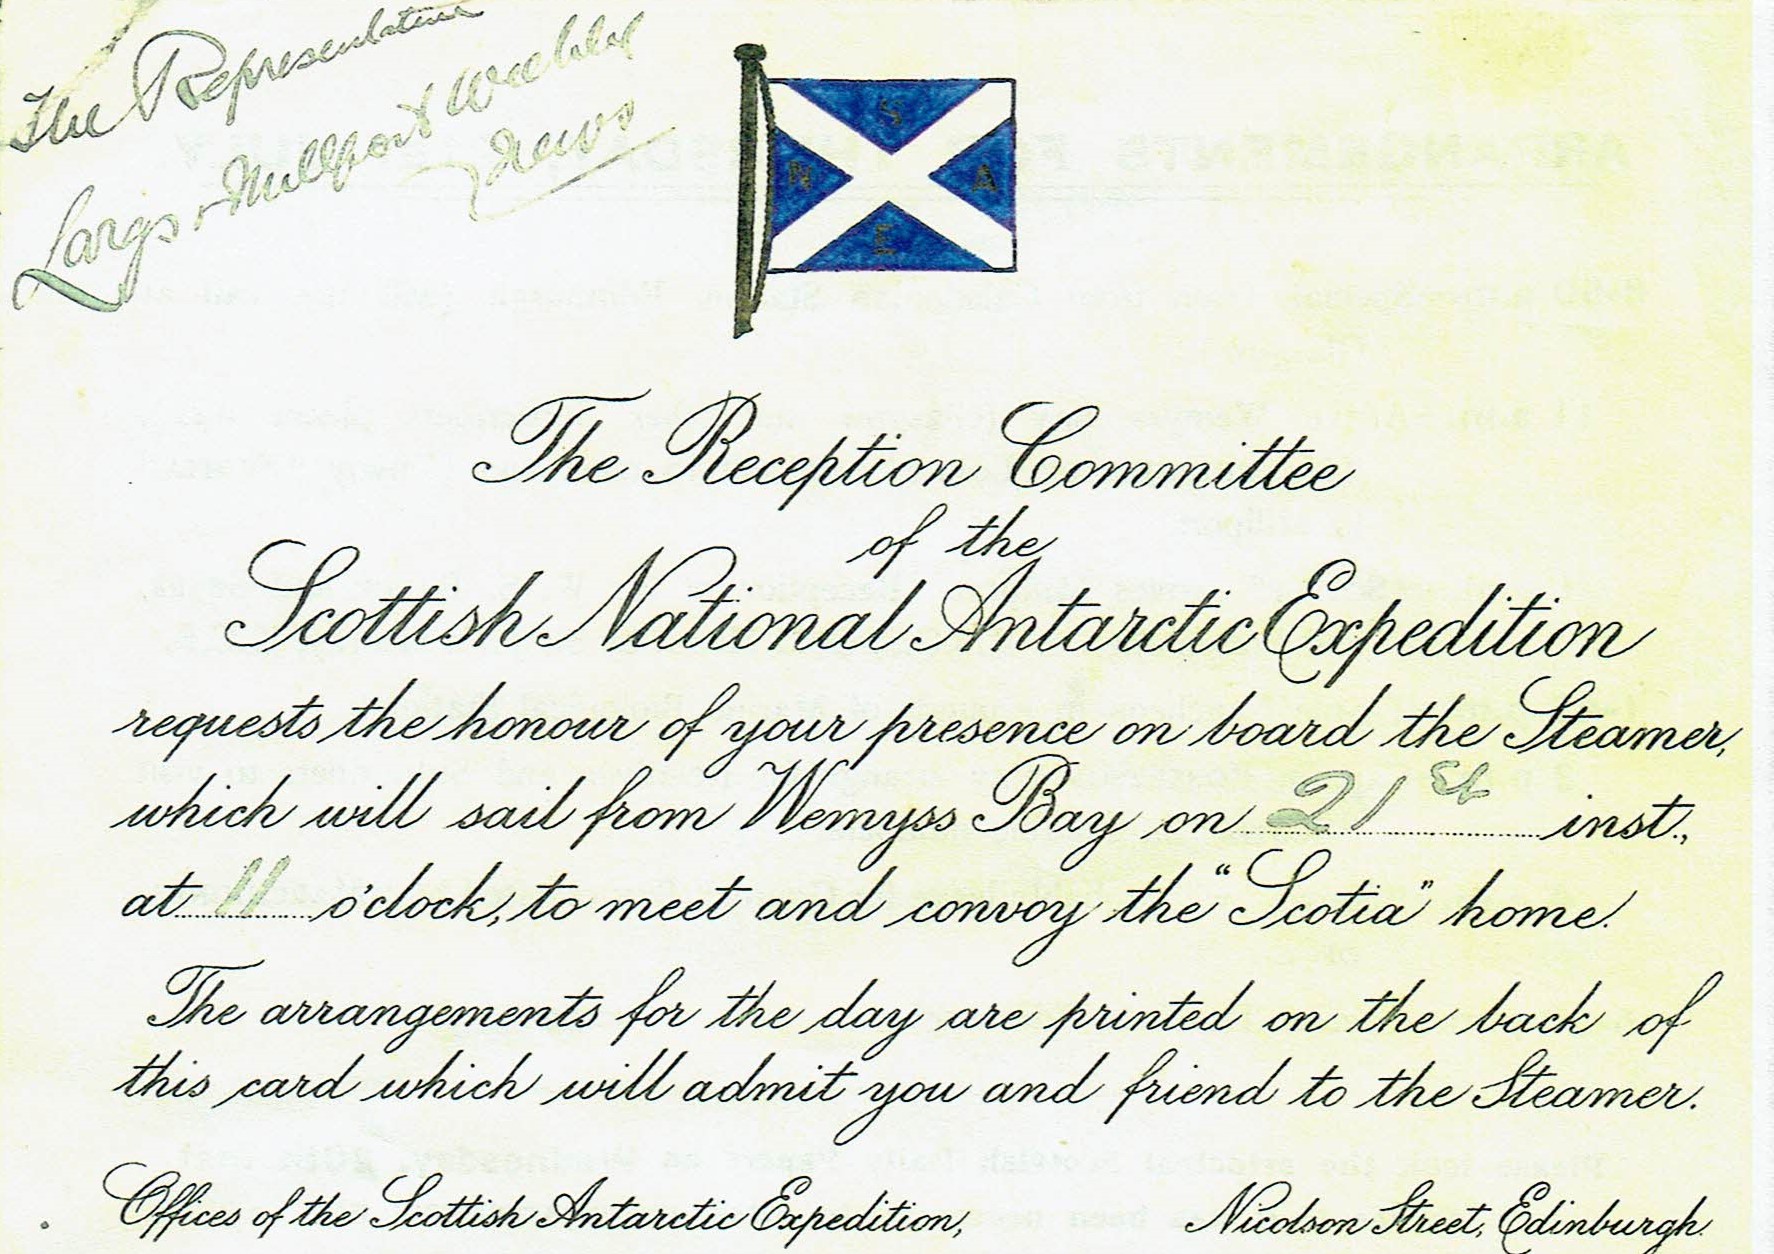 The Representative
Largs & Millport Weekly
News
S
N A
E
The Reception Committee
of the
Scottish National Antarctic Expedition
requests the honour of your presence on board the Steamer,
which will sail from Wemyss Bay on 21st inst.,
at 11 o'clock, to meet and convoy the "Scotia" home.
The arrangements for the day are printed on the back of
this card which will admit you and friend to the Steamer.
Offices of the Scottish Antarctic Expedition, Nicolson Street, Edinburgh.